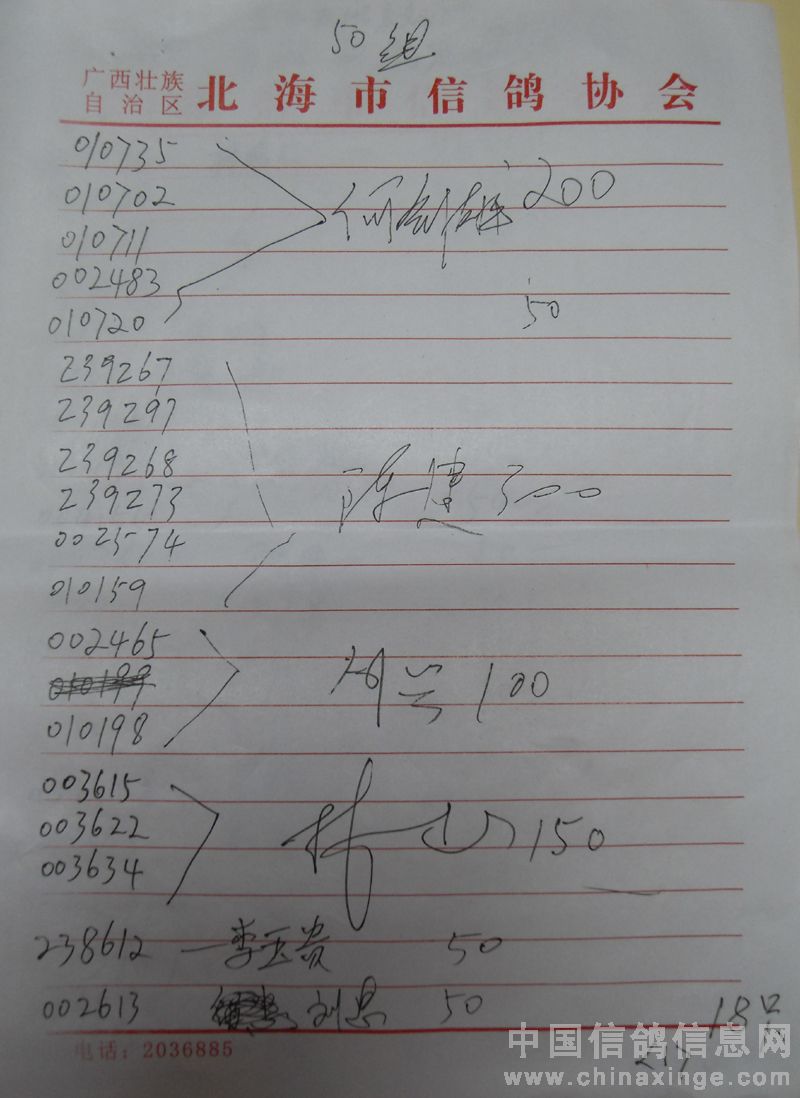 50组
广西壮族
自治区
北海市信鸽协会
010735
010702
何剑雄 200
010711
002483
010720
50
239267
239297
239268
239273
陈建 300
002574
010159
002465
010199
100
010198
003615
003622
林山 150
003634
238612 — 李玉贵 50
002613 刘忠 50
18只
电话：2036885
中国信鸽信息网
www.chinaxinge.com